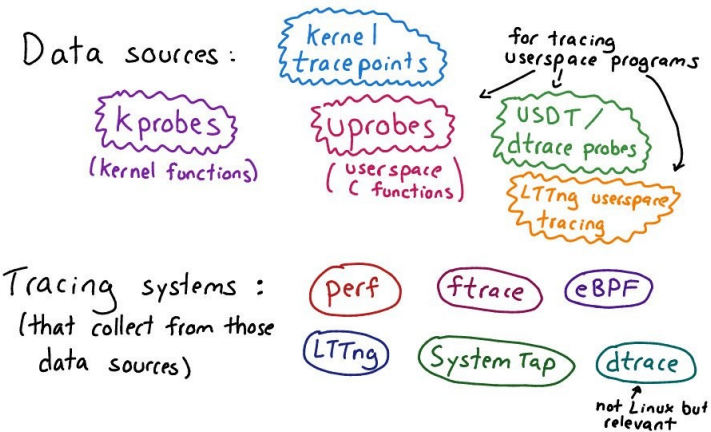 Data sources:
kernel
tracepoints
for tracing
userspace programs
kprobes
(kernel functions)
uprobes
(userspace
C functions)
USDT/
dtrace probes
LTTng userspace
tracing
Tracing systems:
(that collect from those
data sources)
perf
ftrace
eBPF
LTTng
SystemTap
dtrace
not Linux but
relevant